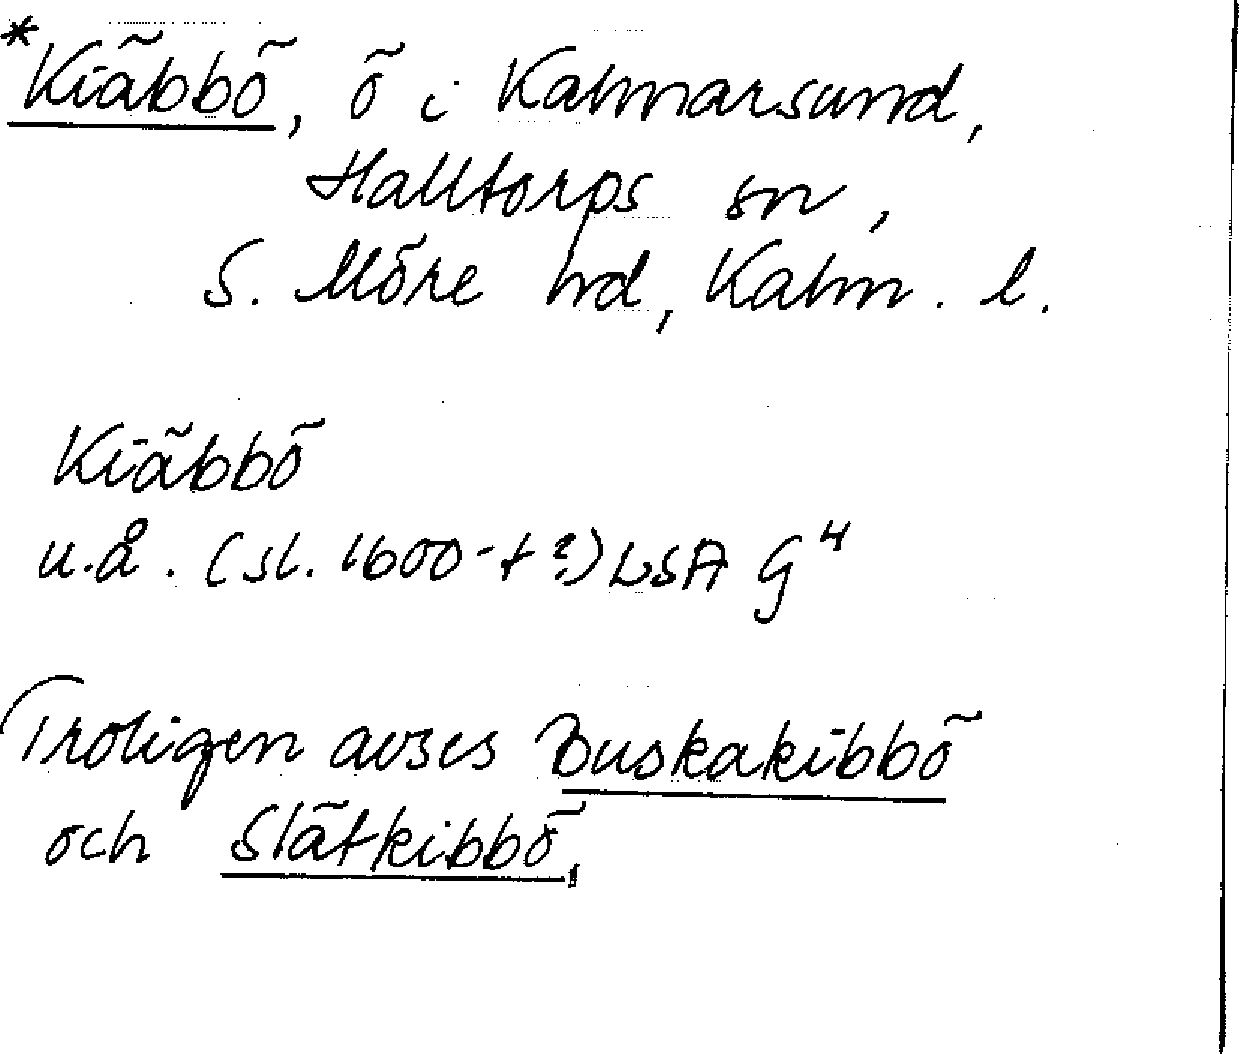 *Kiäbbö, ö i Kalmarsund,
Halltorps sn,
S. Möre hd, Kalm. l.
Kiäbbö
u.å. (sl. 1600-t?) LSA G4
Troligen avses Buskakibbö
och Slätkibbö,